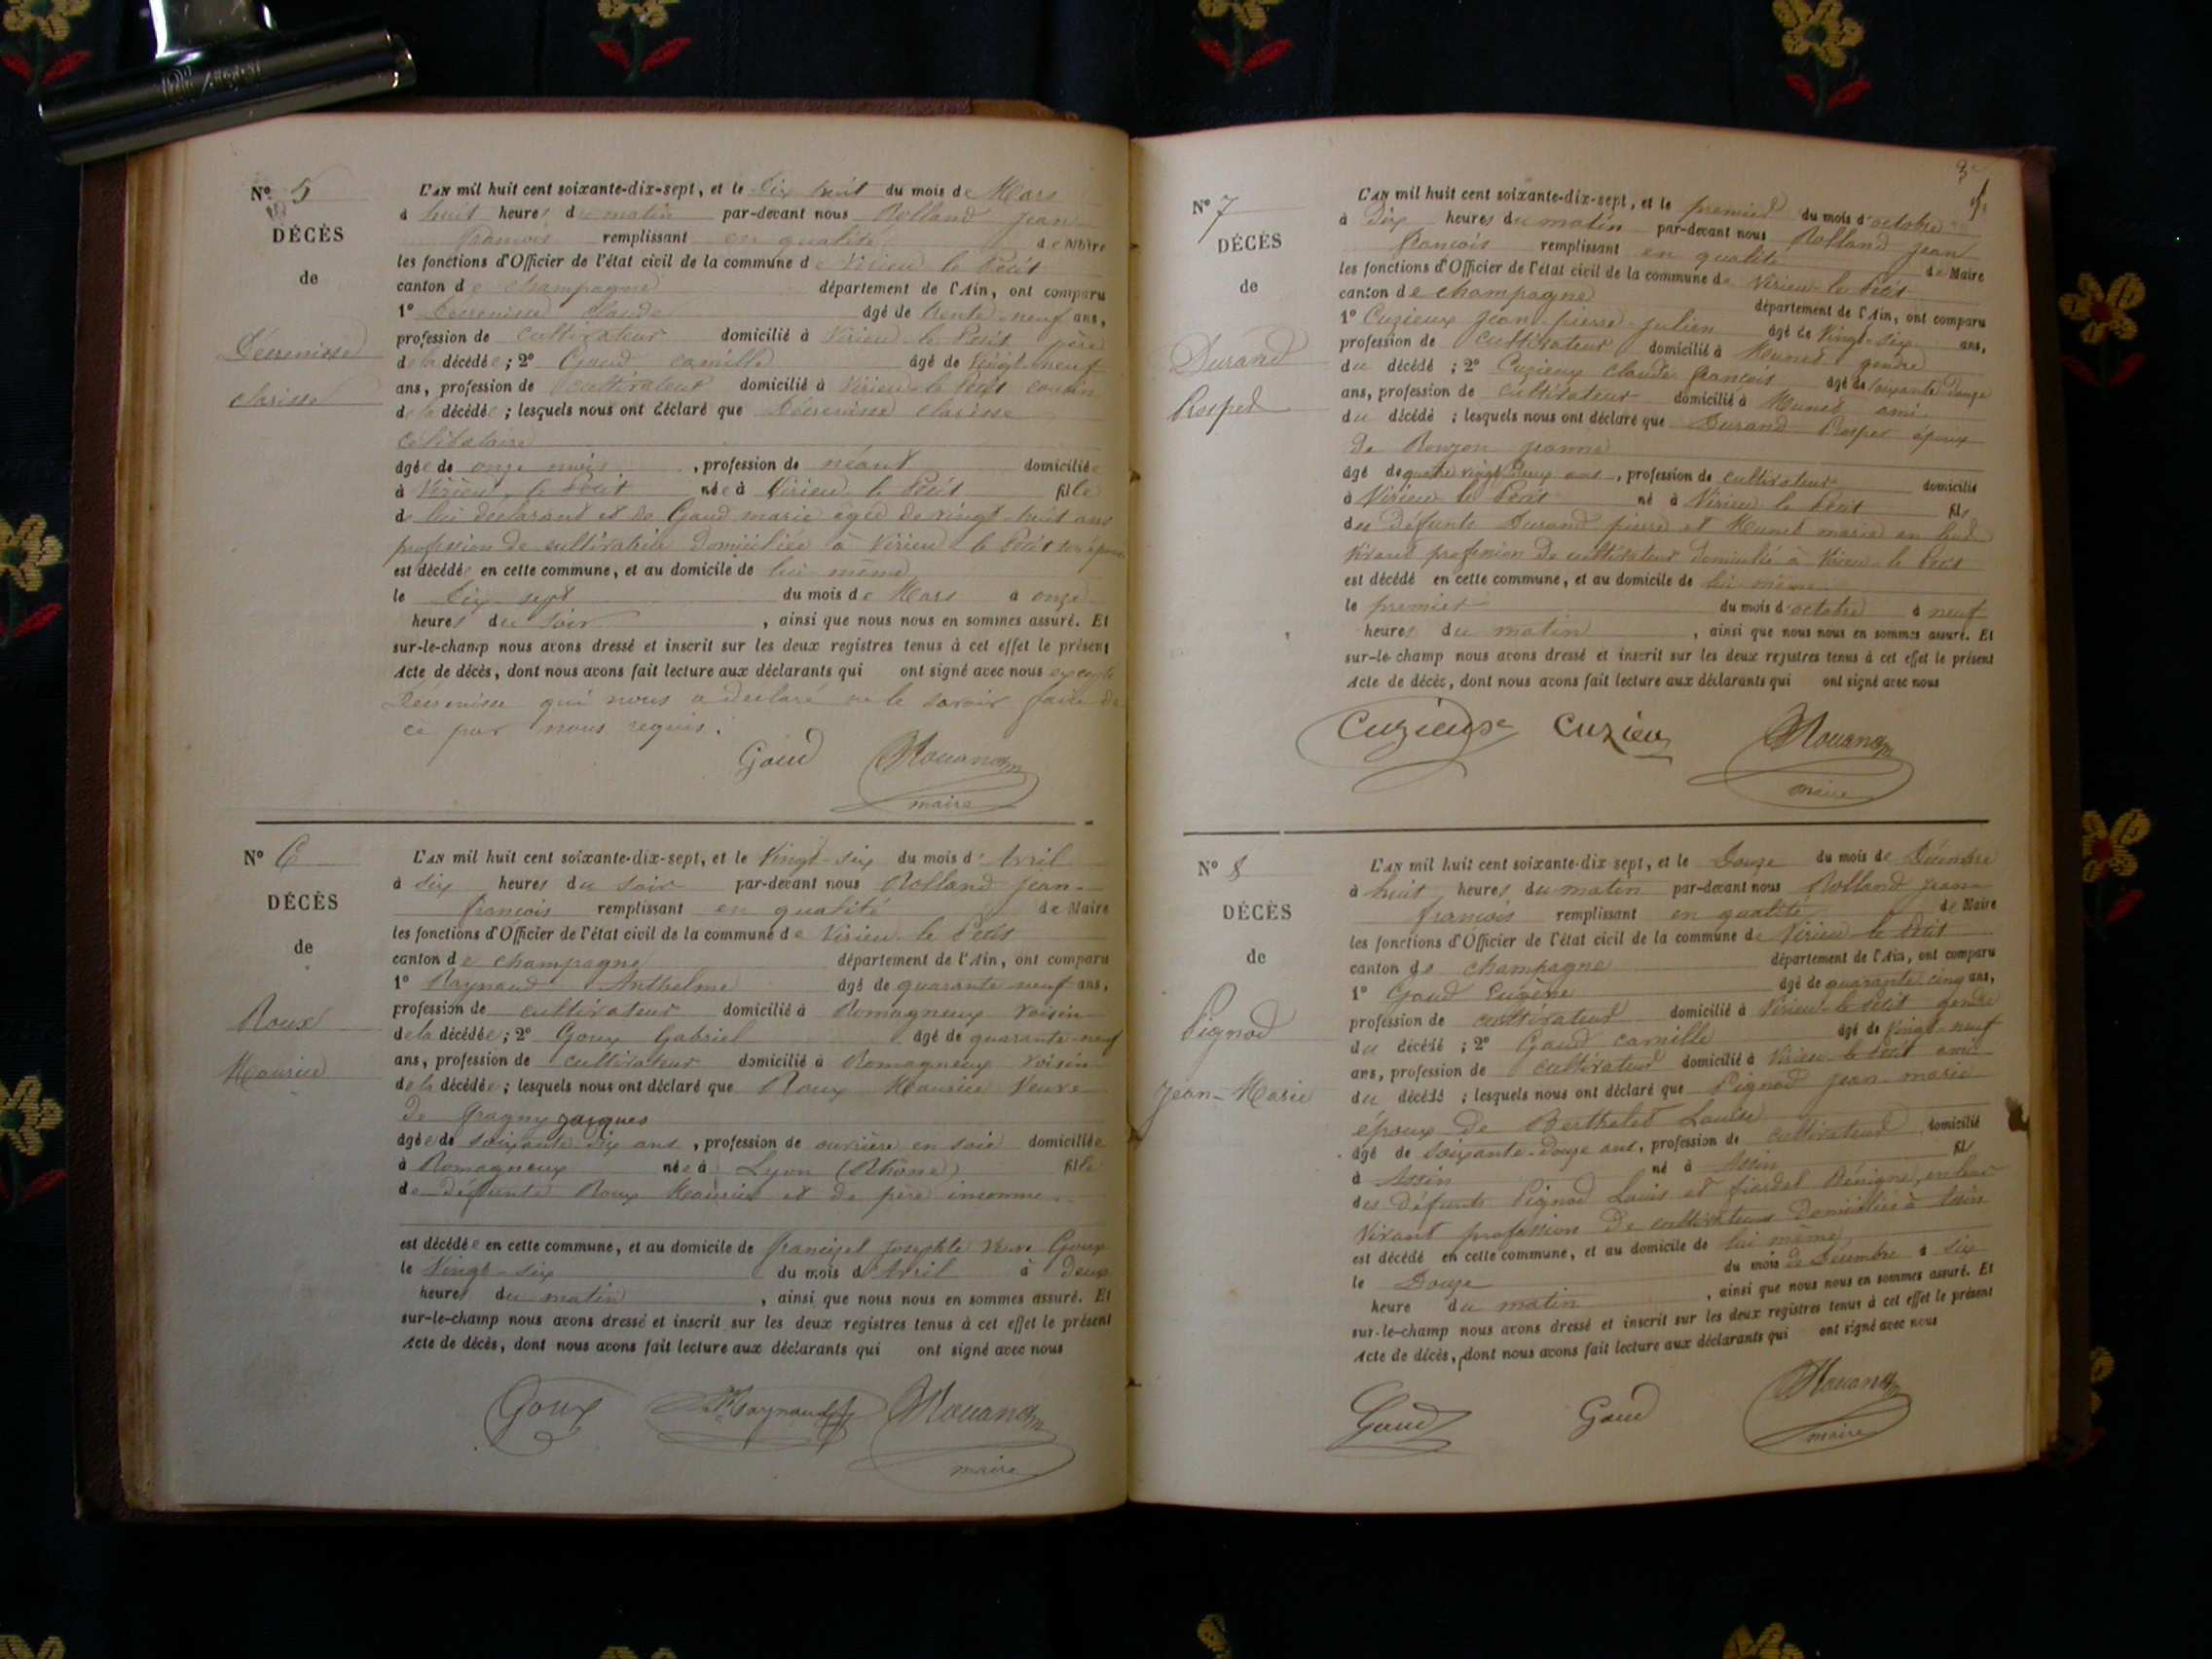 N° 5
DÉCÈS
de
Décrenisse
Clarisse
L'AN mil huit cent soixante-dix-sept, et le dix huit du mois de Mars
à huit heures du matin par-devant nous Rolland Jean
françois remplissant en qualité de Maire
les fonctions d'Officier de l'état civil de la commune de Virieu le Petit
canton de Champagne département de l'Ain, ont comparu
1° Décrenisse Claude âgé de trente-neuf ans,
profession de cultivateur domicilié à Virieu-le-Petit père
de la décédée ; 2° Gaud camille âgé de vingt-neuf
ans, profession de cultivateur domicilié à Virieu-le-Petit cousin
de la décédée ; lesquels nous ont déclaré que Décrenisse Clarisse
célibataire
âgée de onze mois , profession de néant domiciliée
à Virieu-le-Petit née à Virieu le Petit fille
de lui déclarant et de Gaud marie âgée de vingt-huit ans
profession de cultivatrice domiciliée à Virieu le Petit son épouse
est décédée en cette commune, et au domicile de lui même
le Dix-sept du mois de Mars à onze
heures du soir , ainsi que nous nous en sommes assuré. Et
sur-le-champ nous avons dressé et inscrit sur les deux registres tenus à cet effet le présent
Acte de décès, dont nous avons fait lecture aux déclarants qui ont signé avec nous excepté
Décrenisse qui nous a déclaré ne le savoir faire de
ce par nous requis.
Gaud
maire
N° 6
DÉCÈS
de
Roux
Maurice
L'AN mil huit cent soixante-dix-sept, et le Vingt-six du mois d'Avril
à six heures du soir par-devant nous Rolland Jean-
françois remplissant en qualité de Maire
les fonctions d'Officier de l'état civil de la commune de Virieu-le-Petit
canton de Champagne département de l'Ain, ont comparu
1° Raynaud Anthelme âgé de quarante neuf ans,
profession de cultivateur domicilié à Romagneux voisin
de la décédée ; 2° Goux Gabriel âgé de quarante-neuf
ans, profession de cultivateur domicilié à Romagneux voisin
de la décédée ; lesquels nous ont déclaré que Roux Maurice Veuve
de Gragny Jacques
âgée de soixante dix ans , profession de ouvrière en soie domiciliée
à Romagneux née à Lyon (Rhône) fille
de défunte Roux Maurice et de père inconnu
est décédée en cette commune, et au domicile de Josephte Veuve Goux
le Vingt-six du mois d'Avril à deux
heures du matin , ainsi que nous nous en sommes assuré. Et
sur-le-champ nous avons dressé et inscrit sur les deux registres tenus à cet effet le présent
Acte de décès, dont nous avons fait lecture aux déclarants qui ont signé avec nous
Goux Raynaud
maire
N° 7
DÉCÈS
de
Durand
Prosper
L'AN mil huit cent soixante-dix-sept, et le premier du mois d'octobre
à Dix heures du matin par-devant nous Rolland Jean
françois remplissant en qualité de Maire
les fonctions d'Officier de l'état civil de la commune de Virieu-le-Petit
canton de Champagne département de l'Ain, ont comparu
1° Cuzieux Jean-pierre-julien âgé de Vingt-six ans,
profession de cultivateur domicilié à Munet gendre
du décédé ; 2° Cuzieux Claude françois âgé de soixante Douze
ans, profession de cultivateur domicilié à Munet ami
du décédé ; lesquels nous ont déclaré que Durand Prosper époux
de Jeanne
âgé de quatre vingt Deux ans , profession de cultivateur domicilié
à Virieu le Petit né à Virieu le Petit fils
des défunts Durand pierre et Munet marie en leur
vivant profession de cultivateur domicilié à Virieu-le-Petit
est décédé en cette commune, et au domicile de lui-même
le premier du mois d'octobre à neuf
heures du matin , ainsi que nous nous en sommes assuré. Et
sur-le-champ nous avons dressé et inscrit sur les deux registres tenus à cet effet le présent
Acte de décès, dont nous avons fait lecture aux déclarants qui ont signé avec nous
Cuzieux Cuzieu
maire
N° 8
DÉCÈS
de
Pignod
Jean-Marie
L'AN mil huit cent soixante-dix-sept, et le Douze du mois de Décembre
à huit heures du matin par-devant nous Rolland Jean-
françois remplissant en qualité de Maire
les fonctions d'Officier de l'état civil de la commune de Virieu-le-Petit
canton de Champagne département de l'Ain, ont comparu
1° Gaud Eugène âgé de quarante cinq ans,
profession de cultivateur domicilié à Virieu-le-Petit gendre
du décédé ; 2° Gaud camille âgé de Vingt-neuf
ans, profession de cultivateur domicilié à Virieu-le-Petit ami
du décédé ; lesquels nous ont déclaré que Pignod Jean-marie
époux de Berthelet Louise
âgé de Soixante-Douze ans, profession de cultivateur domicilié
à Assin né à Assin fils
des défunts Pignod Louis et Bénigne, en leur
vivant profession de cultivateurs domiciliés à Assin
est décédé en cette commune, et au domicile de lui même
le Douze du mois de Décembre à six
heure du matin , ainsi que nous nous en sommes assuré. Et
sur-le-champ nous avons dressé et inscrit sur les deux registres tenus à cet effet le présent
Acte de décès, dont nous avons fait lecture aux déclarants qui ont signé avec nous
Gaud Gaud
maire